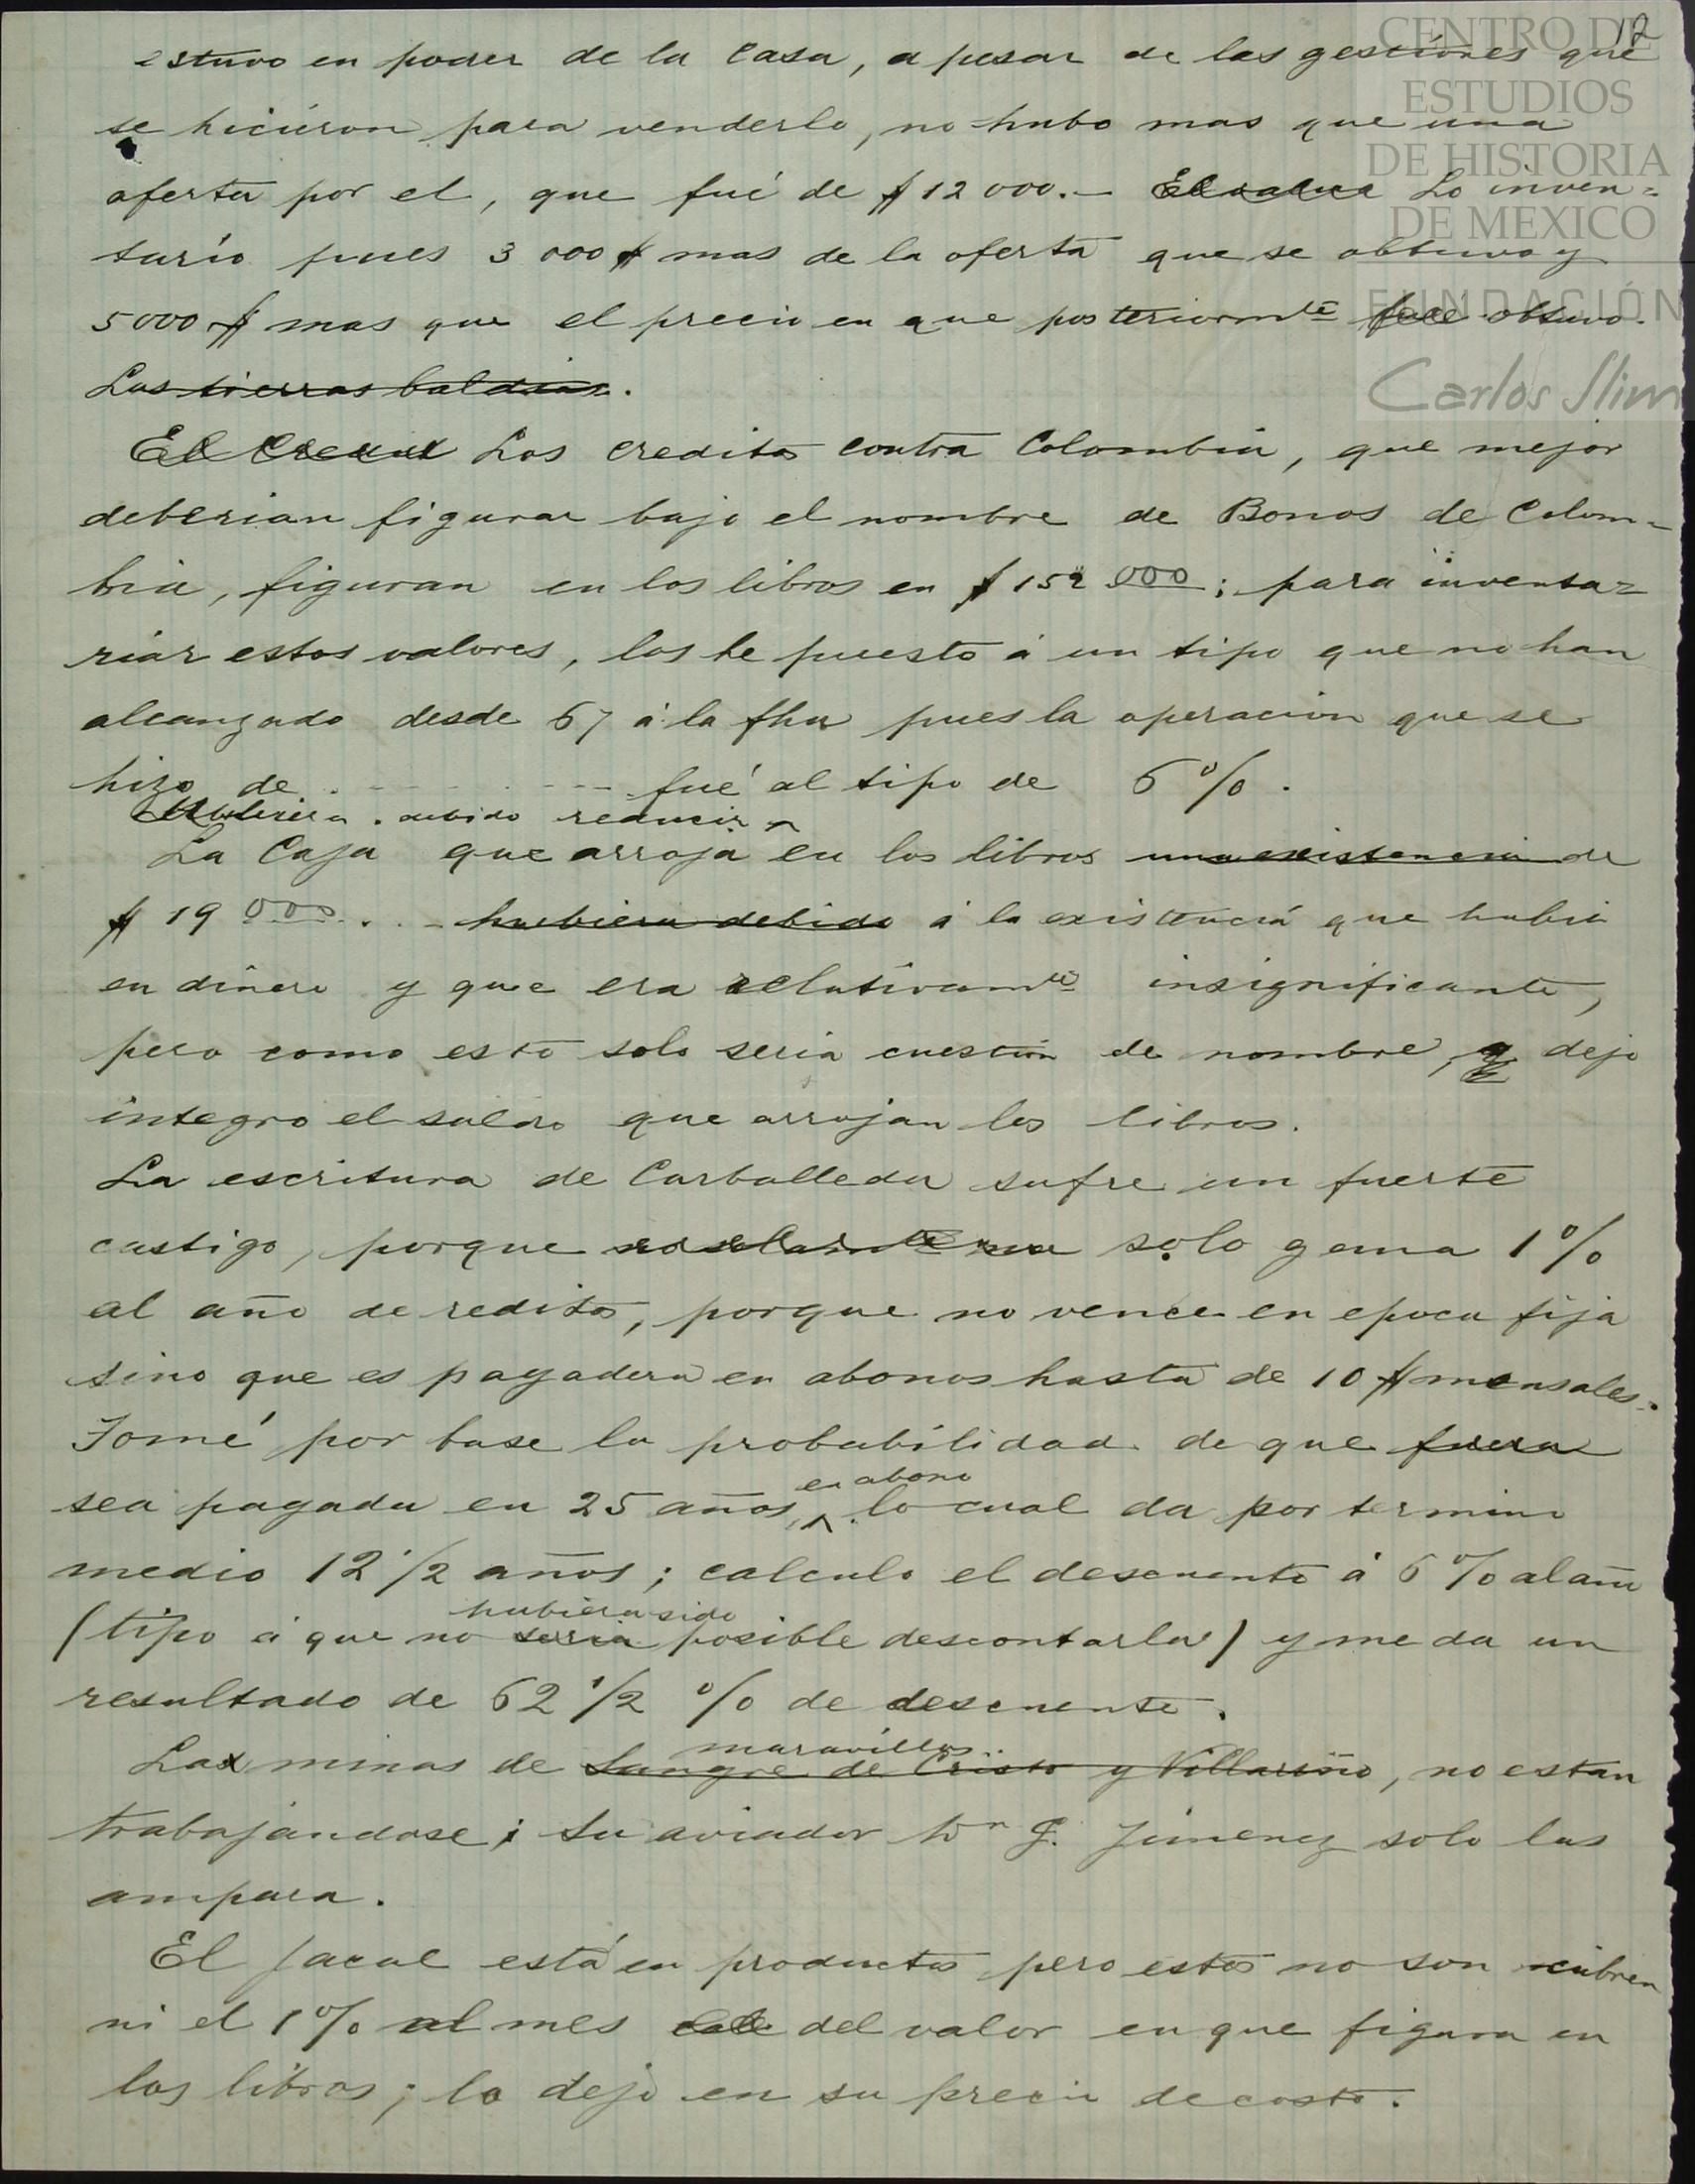 12
CENTRO DE
ESTUDIOS
DE HISTORIA
DE MEXICO
FUNDACIÓN
Carlos Slim
estuvo en poder de la casa, a pesar de las gestiones que
se hiciéron para venderlo, no hubo mas que una
oferta por el, que fué de $12 000.– Lo inven-
tarío pues 3 000 $ mas de la oferta que se obtuvo y
5000 $ mas que el precio en que posteriormte fué obtuvo.
Las tierras baldias.
El Los creditos contra Colombia, que mejor
deberian figurar bajo el nombre de Bonos de Colom-
bia, figuran en los libros en $ 152 000; para inventa-
riar estos valores, los he puesto á un tipo que no han
alcanzado desde 67 á la fha pues la operacion que se
hizo de . - - - - - - fué al tipo de 6 %.
Hubiera debido reducir
La Caja que arroja en los libros una existencia de
$ 19 000 . . - hubiera debido á la existencia que habia
en dinero y que era relativamte insignificante,
pero como esto solo seria cuestion de nombre, dejo
integro el saldo que arrojan los libros.
La escritura de Carballeda sufre un fuerte
castigo, porque solo gana 1 %
al año de reditos, porque no vence en epoca fija
sino que es pagadera en abonos hasta de 10 $ mensales.
Tomé por base la probabilidad de que fuera
en abono
sea pagada en 25 años, lo cual da por termino
medio 12 1/2 años; calculo el descuento á 6 % al año
hubiera sido
(tipo á que no seria posible descontarla) y me da un
resultado de 62 1/2 % de descuento.
maravillas
Las minas de Sangre de Cristo y Villariño, no estan
trabajándose; su aviador Dn J. Jimenez solo las
ampara.
El Jacal está en productos pero estos no son cubren
ni el 1 % al mes del valor en que figura en
los libros; lo dejo en su precio de costo.